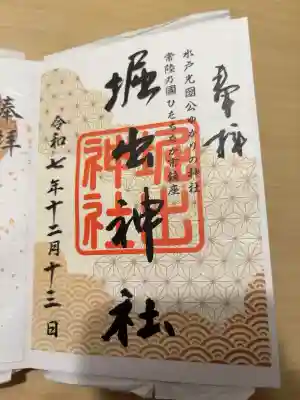 奉拝
水戸光圀公ゆかりの神社
常陸乃國ひたちなか市鎮座
堀出神社
堀出神社
令和七年十二月十三日
奉拝